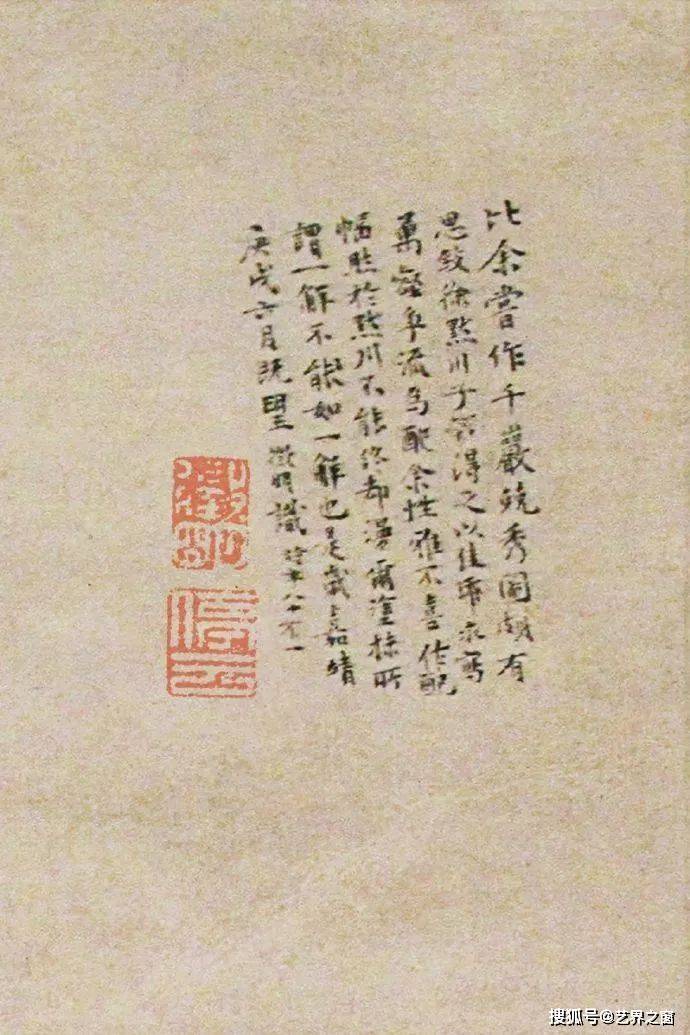 比余嘗作千巖競秀圖頗有
思致徐默川子 得之以佳 求寫
萬壑爭流為配余性雅不喜作配
幅然於默川不能終却漫爾塗抹所
謂一解不能如一解也是歲嘉靖
庚戌六月既望徵明識時年八十有一
徵明
停雲
搜狐号@艺界之窗